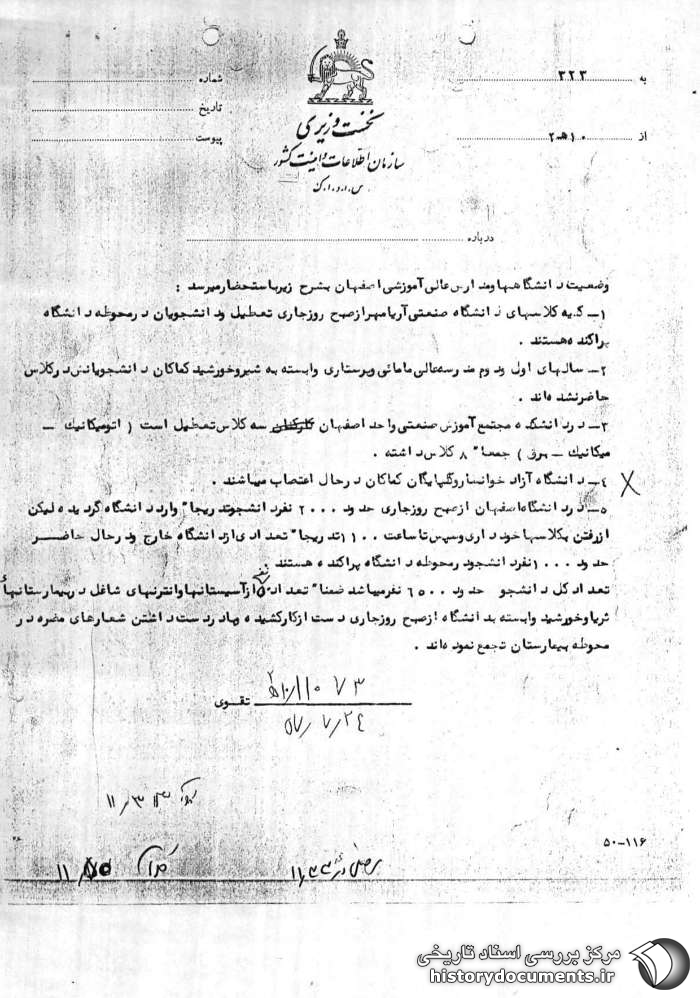 شماره
تاریخ
پیوست
نخست وزیری
سازمان اطلاعات و امنیت کشور
س.ا.و.ا.ک
به ۳۲۳
از ۱۰ﻫ۲
درباره
وضعیت دانشگاهها و مدارس عالی آموزشی اصفهان بشرح زیر باستحضار میرسد :
۱ـ کلیه کلاسهای دانشگاه صنعتی آریامهر از صبح روز جاری تعطیل و دانشجویان در محوطه دانشگاه
پراکنده هستند .
۲ـ سالهای اول و دوم مدرسه عالی مامائی و پرستاری وابسته به شیر و خورشید کماکان دانشجویانش در کلاس
حاضر نشده اند
۳ـ در دانشکده مجتمع آموزش صنعتی واحد اصفهان سه کلاس تعطیل است ( اتومکانیک ـ
میکانیک ـ برق ) جمعا" ۸ کلاس داشته .
٤ـ دانشگاه آزاد خوانسار و گلپایگان کماکان در حال اعتصاب میباشند .
۵ـ در دانشگاه اصفهان از صبح روز جاری حدود ۲۰۰۰ نفر دانشجو تدریجا" وارد دانشگاه گردیده لیکن
از رفتن بکلاسها خودداری و سپس تا ساعت ۱۱۰۰ تدریجا" تعدادی از دانشگاه خارج و در حال حاضر
حدود ۱۰۰۰ نفر دانشجو در محوطه دانشگاه پراکنده هستند
تعداد کل دانشجو حدود ٦٥۰۰ نفر میباشد ضمنا" تعداد ۵۰ نفر از آسیستانها و انترنهای شاغل در بیمارستانهای
ثریا و خورشید وابسته به دانشگاه از صبح روز جاری دست از کار کشیده و با در دست داشتن شعارهای مضره در
محوطه بیمارستان تجمع نموده اند .
تقوی
۵۷/۷/۲٤
۵۰-۱۱۶
مرکز بررسی اسناد تاریخی
historydocuments.ir